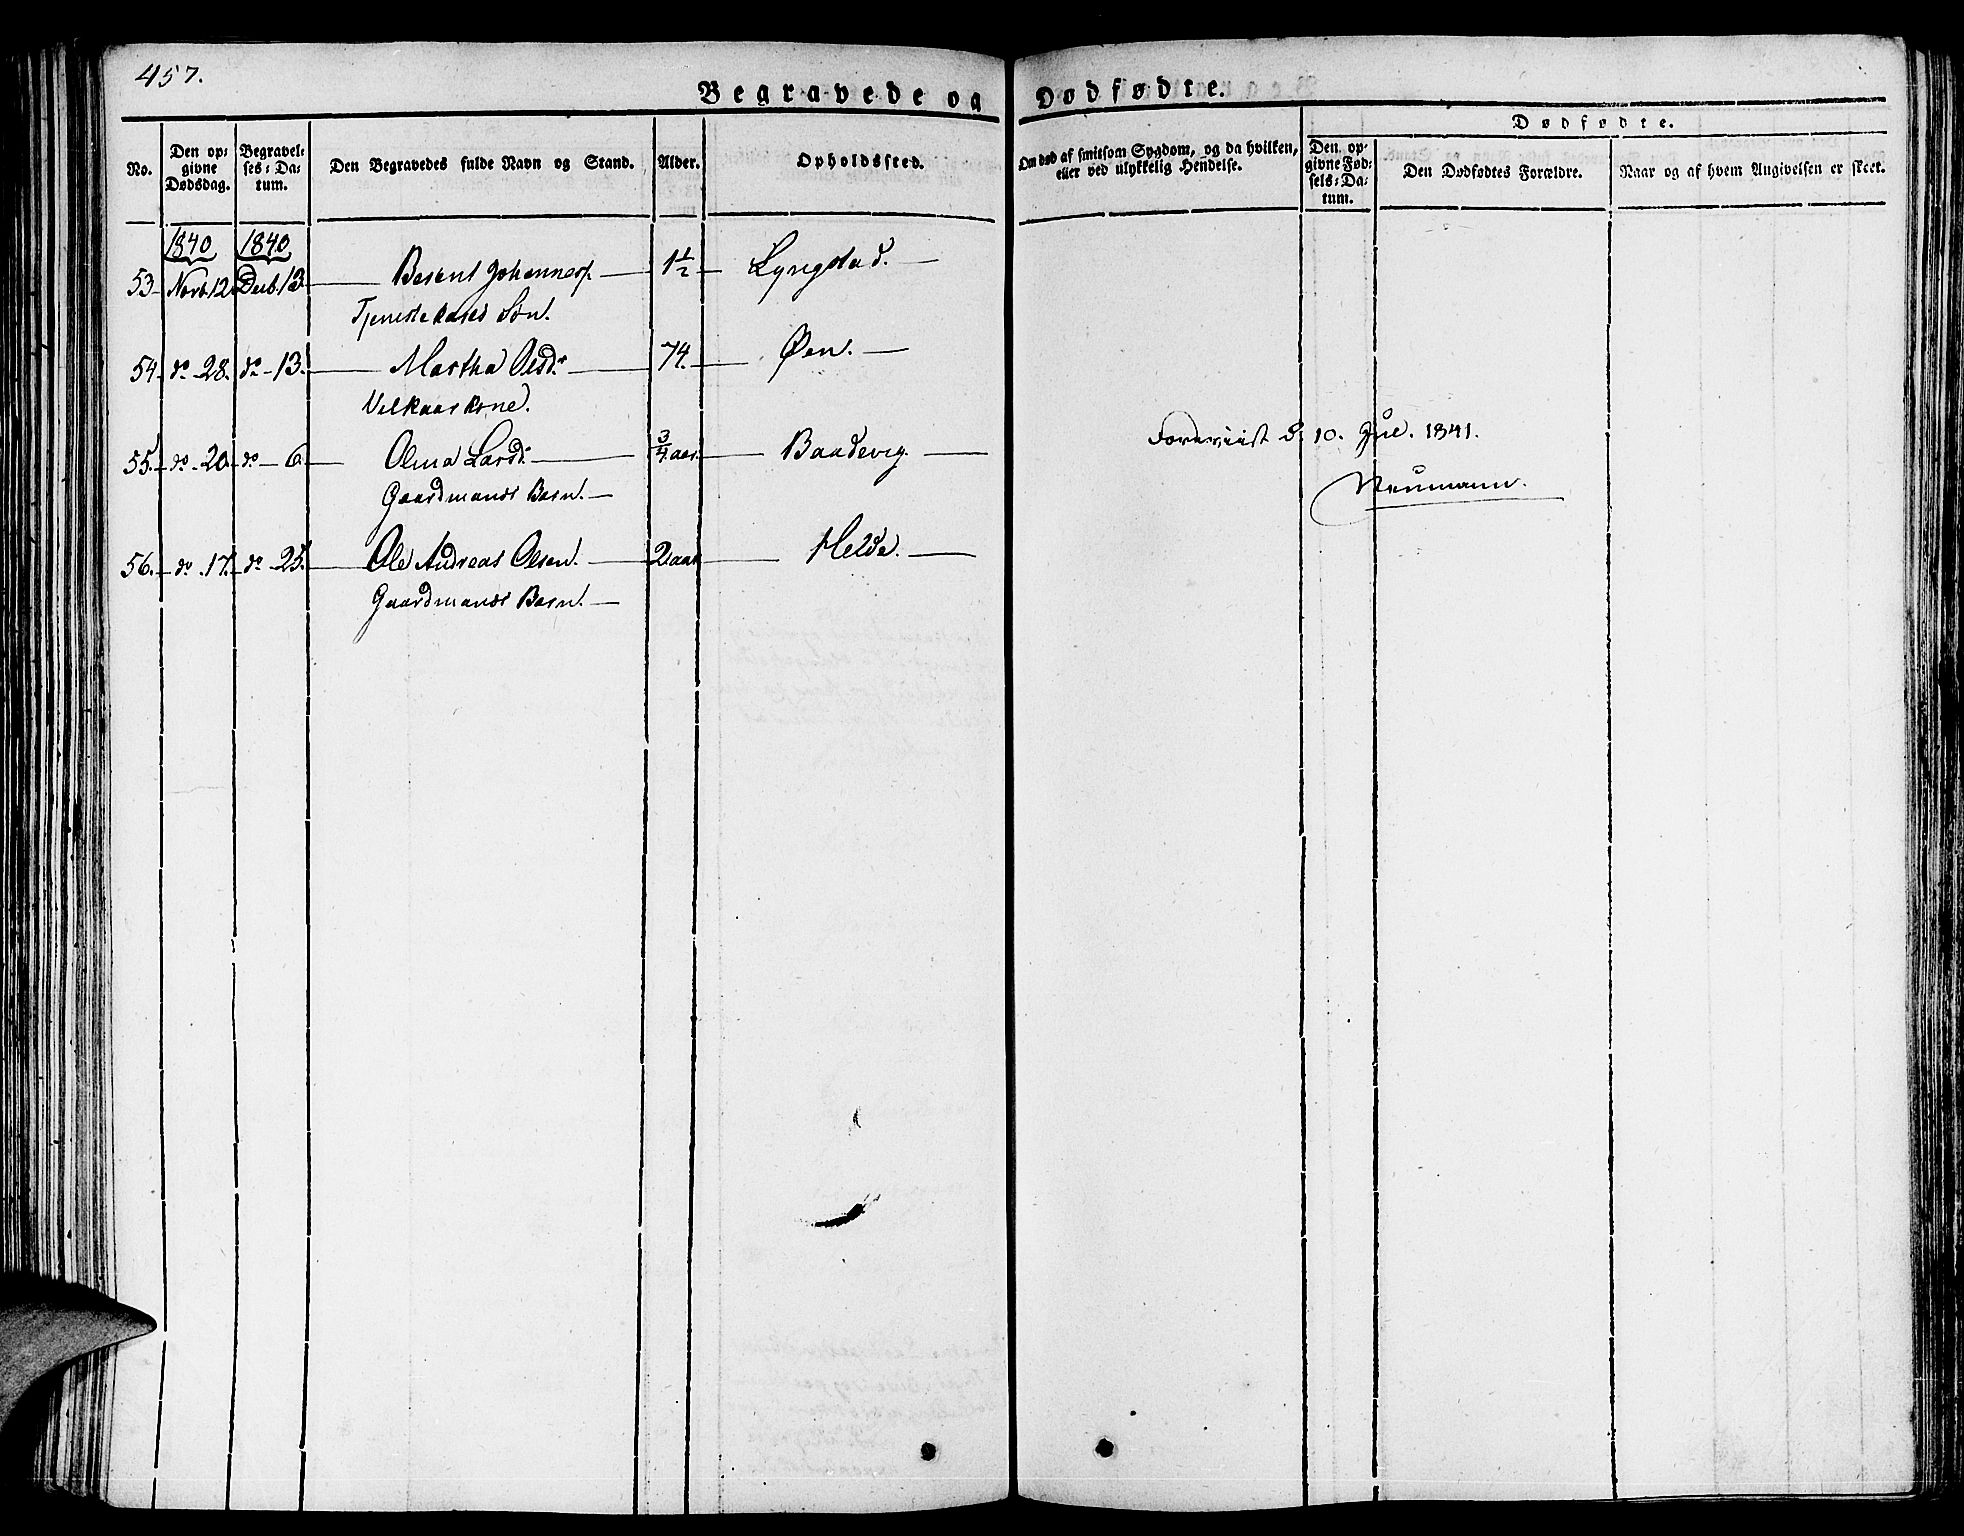 457.
Begravede og Dødfødte.
No.
Den op-
givne
Dødsdag.
Begravel-
ses-Da-
tum.
Den Begravedes fulde Navn og Stand.
Alder.
Opholdssted.
Om død af smitsom Sygdom, og da hvilken,
eller ved ulykkelig Hendelse.
Dødfødte.
Den op-
givne Fød-
sels-Da-
tum.
Den Dødfødtes Forældre.
Naar og af hvem Angivelsen er skeet.
1840 1840
53 Novb. 12 Decb. 13 Berent Johannes 1½ Lyngstad.
Tjeneste Søn.
54 do 28. do 13. Martha Olsdr 74. Øen.
Vilkaarskone.
55. do 20 do 6. Larsdr ¾ aar Baadevig.
Gaardmands Barn.
56. do 17. do 25. Ole Andreas Olsen. 2 aar Helde.
Gaardmands Barn.
Foreviist d. 10. Jul. 1841.
Neumann.